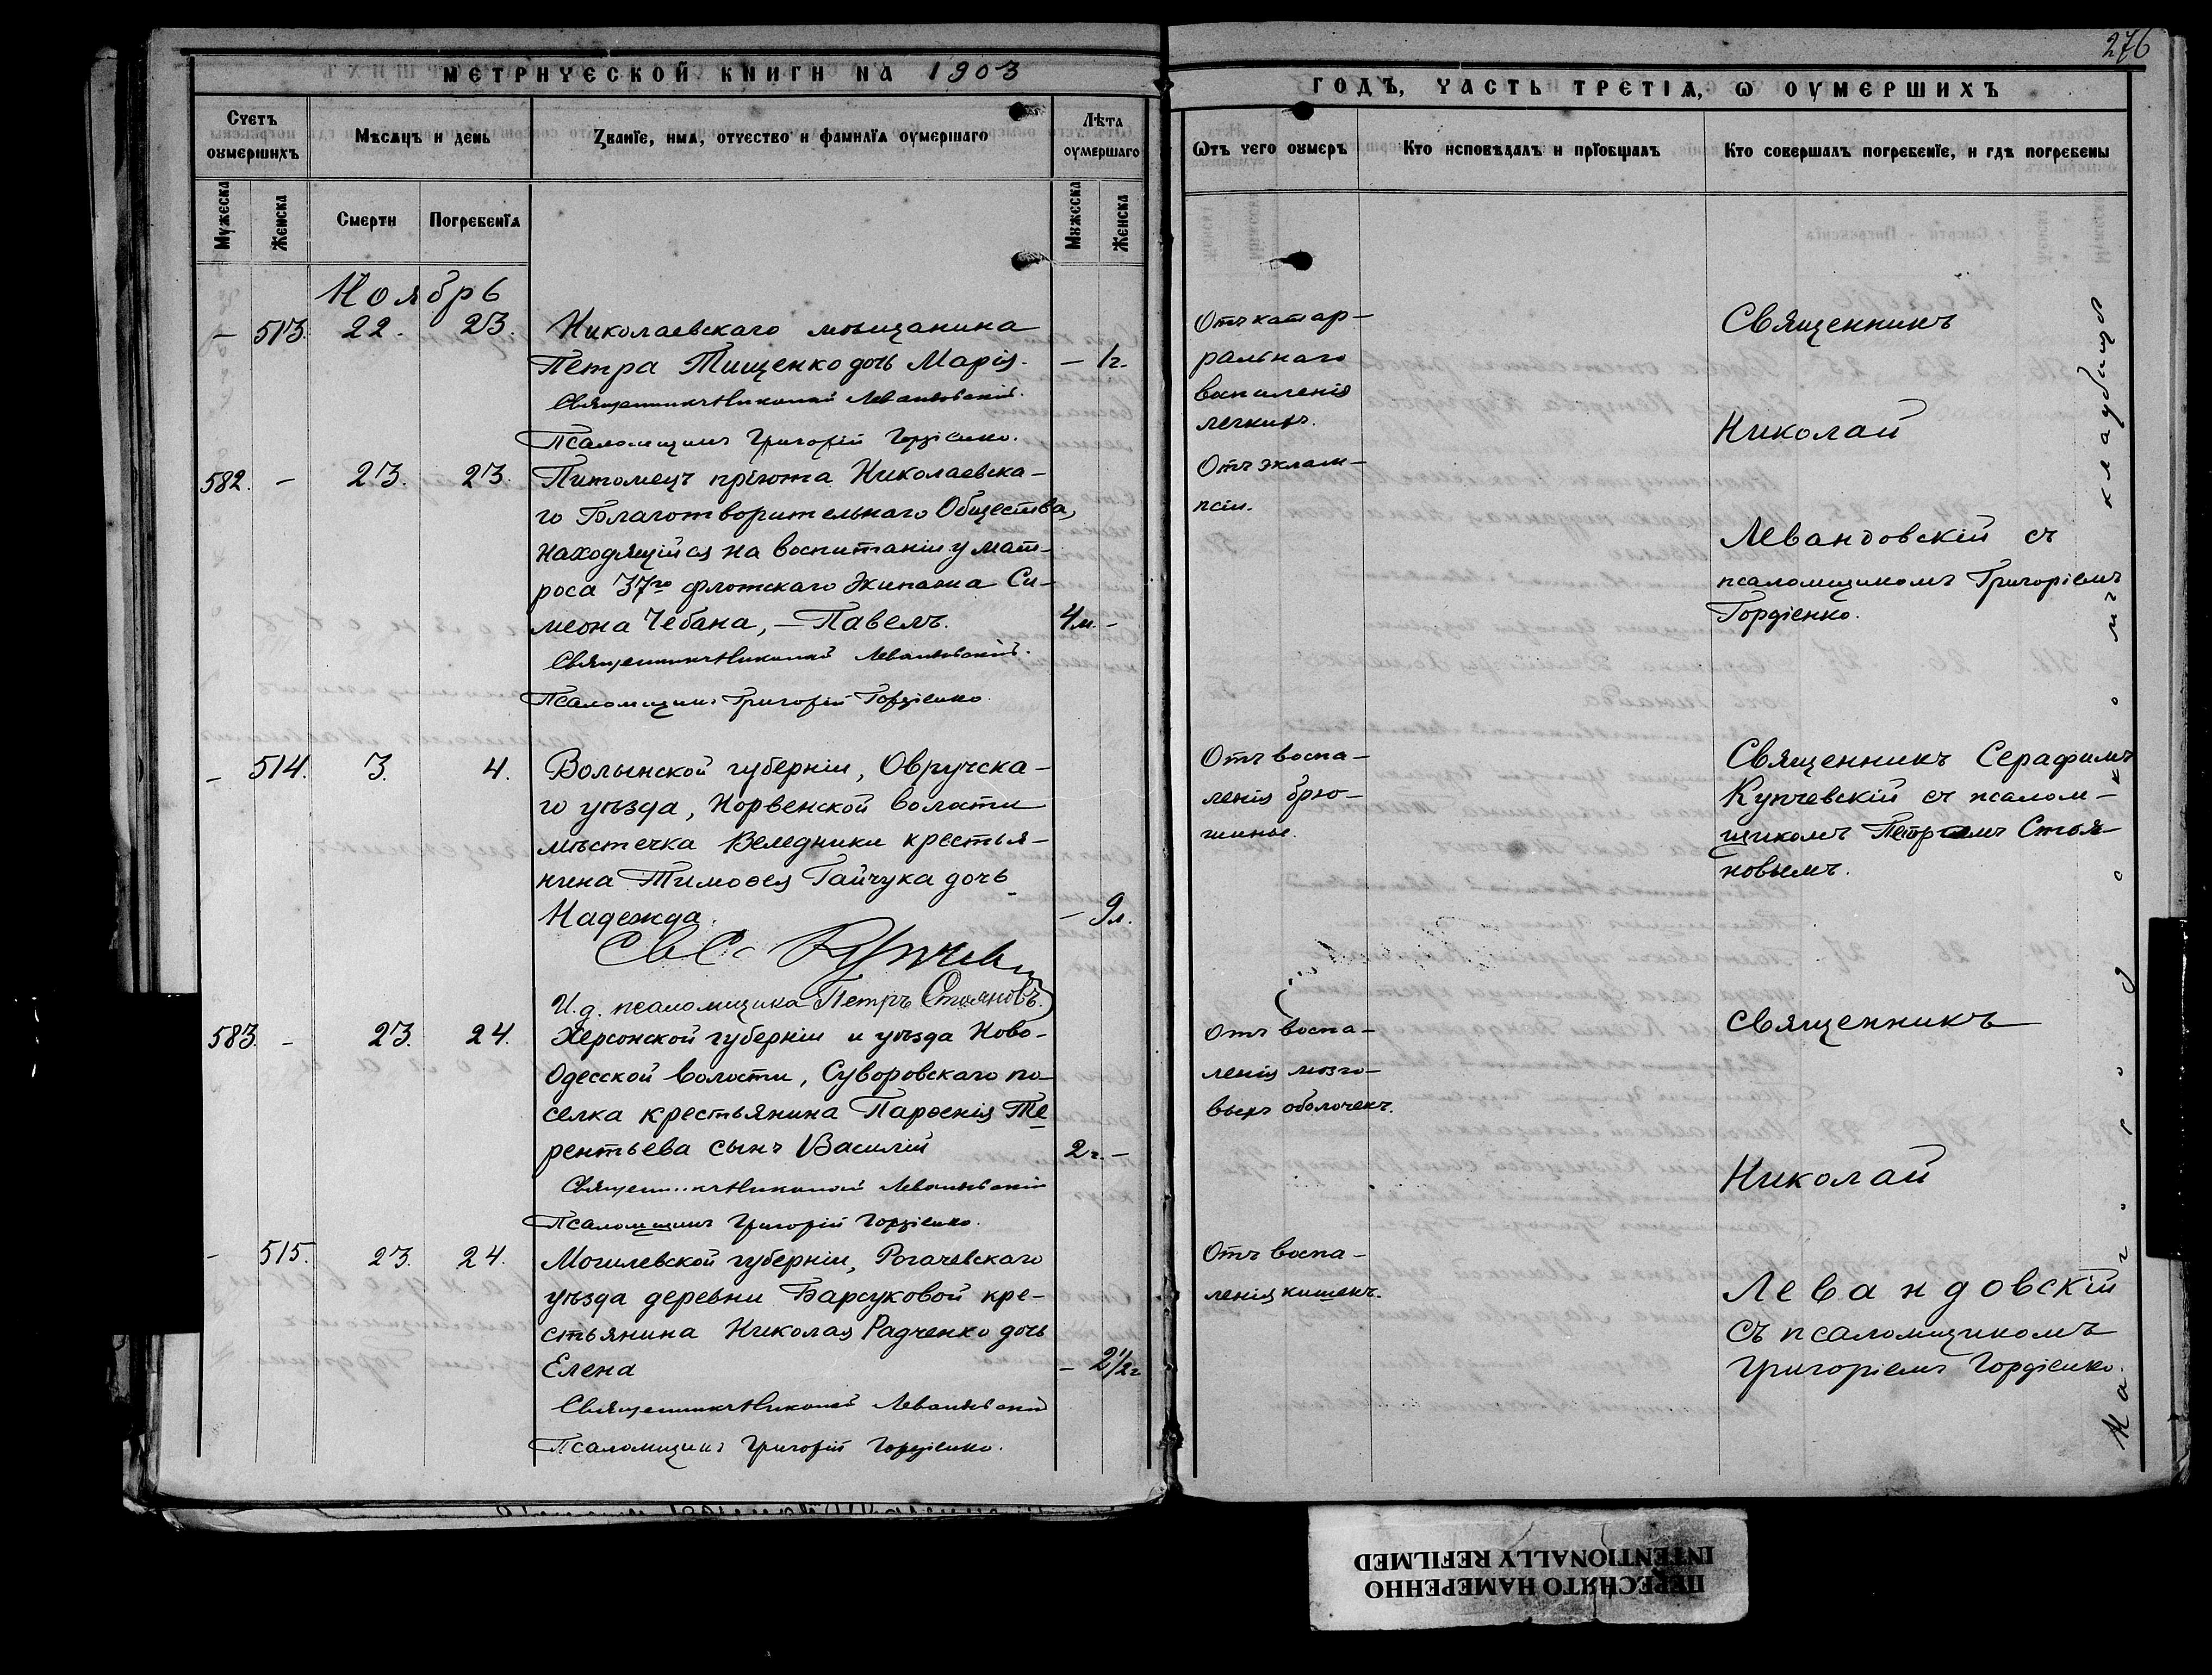 276
МЕТРИЧЕСКОЙ КНИГИ НА 1903
ГОДЪ, ЧАСТЬ ТРЕТІЯ, Ѡ ОУМЕРШИХЪ
Счетъ оумершихъ
Мѣсяцъ и день
Званїе, имя, отчество и фамилїя оумершаго
Лѣта оумершаго
Ѿтъ чего оумеръ
Кто исповѣдалъ и прїобщалъ
Кто совершалъ погребенїе, и гдѣ погребены
Мужеска
Женска
Смерти
Погребенїя
Мужеска
Женска
Ноябрь
– 513. 22. 23. Николаевскаго мѣщанина
Петра Тищенко дочь Марія. – 1г.
Священникъ Николай Левандовскій.
Псаломщикъ Григорій Гордіенко.
Отъ катар–
ральнаго
воспаленія
легкихъ.
Священникъ
Николай
Левандовскій съ
псаломщикомъ Григоріемъ
Гордіенко.
582. – 23. 23. Питомецъ пріюта Николаевска–
го Благотворительнаго Общества,
находящійся на воспитаніи у мат–
роса 37го флотскаго Экипажа Си–
меона Чебана, – Павелъ. 4м. –
Священникъ Николай Левандовскій.
Псаломщикъ Григорій Гордіенко.
Отъ эклам–
псіи.
– 514. 3. 4. Волынской губерніи, Овручска–
го уѣзда, Норвенской волости
мѣстечка Веледники крестья–
нина Тимоѳея Гайчука дочь
Надежда. – 9л.
Св С.
И. д. псаломщика Петръ Стояновъ.
Отъ воспа–
ленія брю–
шины.
Священникъ Серафимъ
Купчевскій съ псалом–
щикомъ Петромъ Стоя–
новымъ.
583. – 23. 24. Херсонской губерніи и уѣзда Ново–
Одесской волости, Суворовскаго по–
селка крестьянина Парѳенія Те
рентьева сынъ Василій 2г. –
Священникъ Николай Левандовскій
Псаломщикъ Григорій Гордіенко.
Отъ воспа–
ленія мозго–
выхъ оболочекъ.
Священникъ
Николай
Левандовскій
съ псаломщикомъ
Григоріемъ Гордіенко.
– 515. 23. 24. Могилевской губерніи, Рогачевскаго
уѣзда деревни Барсуковой кре–
стьянина Николая Радченко дочь
Елена – 2 1/2 г
Священникъ Николай Левандовскій
Псаломщикъ Григорій Гордіенко.
Отъ воспа–
ленія кишекъ.
На городскомъ кладбищѣ
ПЕРЕСНЯТО НАМЕРЕННО
INTENTIONALLY REFILMED